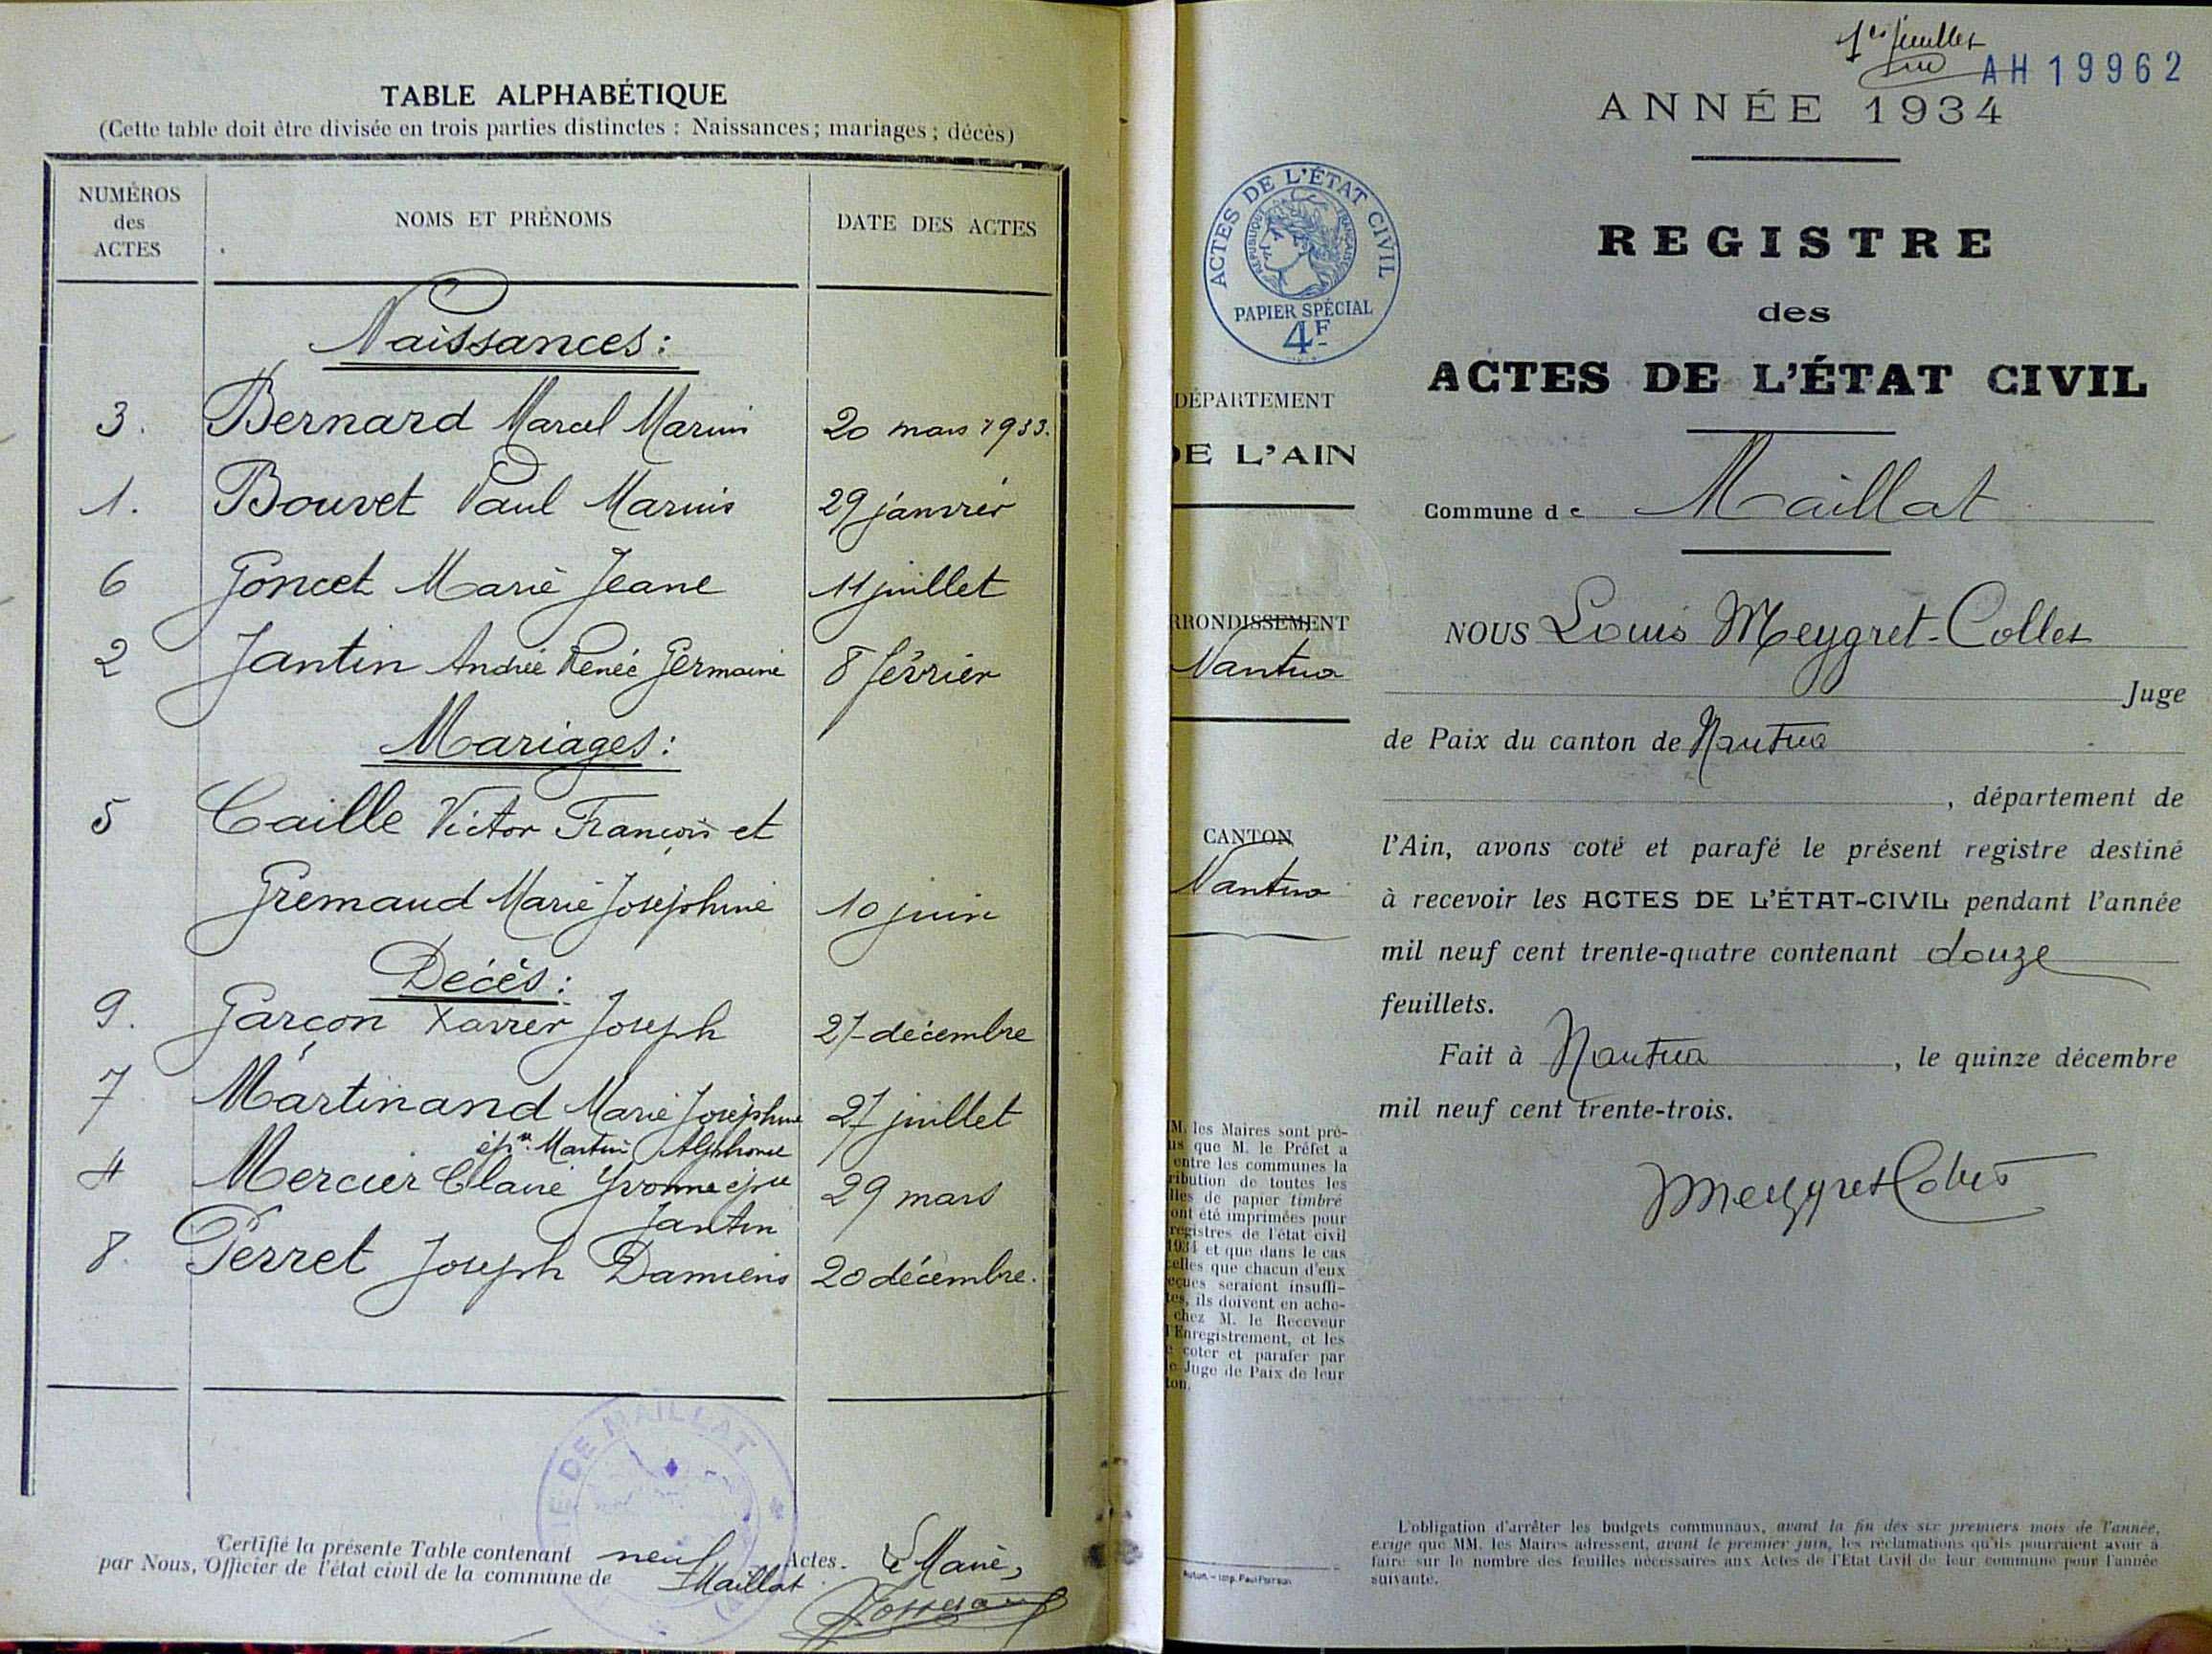 TABLE ALPHABÉTIQUE
(Cette table doit être divisée en trois parties distinctes : Naissances ; mariages ; décès)
NUMÉROS des ACTES
NOMS ET PRÉNOMS
DATE DES ACTES
Naissances :
3. Bernard Marcel Marius 20 mars 1933.
1. Bouvet Paul Marius 29 janvier
6 Goncet Marie Jeane 11 juillet
2 Jantin Andrée Renée Germaine 8 février
Mariages :
5 Caille Victor François et
Gremaud Marie Joséphine 10 juin
Décès :
9. Garçon Xavier Joseph 27 décembre
7 Martinand Marie Joséphine 27 juillet
ép. Martin Alphonse
4 Mercier Claire Yvonne épse 29 mars
Jantin
8. Perret Joseph Damiens 20 décembre.
MAILLAT
Certifié la présente Table contenant neuf Actes.
par Nous, Officier de l'état civil de la commune de Maillat
Le Maire,
1er feuillet
AH 19962
ANNÉE 1934
REGISTRE
des
ACTES DE L'ÉTAT CIVIL
ACTES DE L'ÉTAT CIVIL
RÉPUBLIQUE FRANÇAISE
PAPIER SPÉCIAL
4F
DÉPARTEMENT
DE L'AIN
Commune de Maillat
RRONDISSEMENT
Nantua
CANTON
Nantua
NOUS Louis Meygret-Collet
Juge
de Paix du canton de Nantua
, département de
l'Ain, avons coté et parafé le présent registre destiné
à recevoir les ACTES DE L'ÉTAT-CIVIL pendant l'année
mil neuf cent trente-quatre contenant douze
feuillets.
Fait à Nantua, le quinze décembre
mil neuf cent trente-trois.
Meygret Collet
M. les Maires sont pré-
us que M. le Préfet a
entre les communes la
ribution de toutes les
lles de papier timbré
ont été imprimées pour
registres de l'état civil
1934 et que dans le cas
celles que chacun d'eux
eçues seraient insuffi-
tes, ils doivent en ache-
chez M. le Receveur
l'Enregistrement, et les
e coter et parafer par
e Juge de Paix de leur
ton.
Autun. - Imp. Paul Poirson
L'obligation d'arrêter les budgets communaux, avant la fin des six premiers mois de l'année,
exige que MM. les Maires adressent, avant le premier juin, les réclamations qu'ils pourraient avoir à
faire sur le nombre des feuilles nécessaires aux Actes de l'État Civil de leur commune pour l'année
suivante.